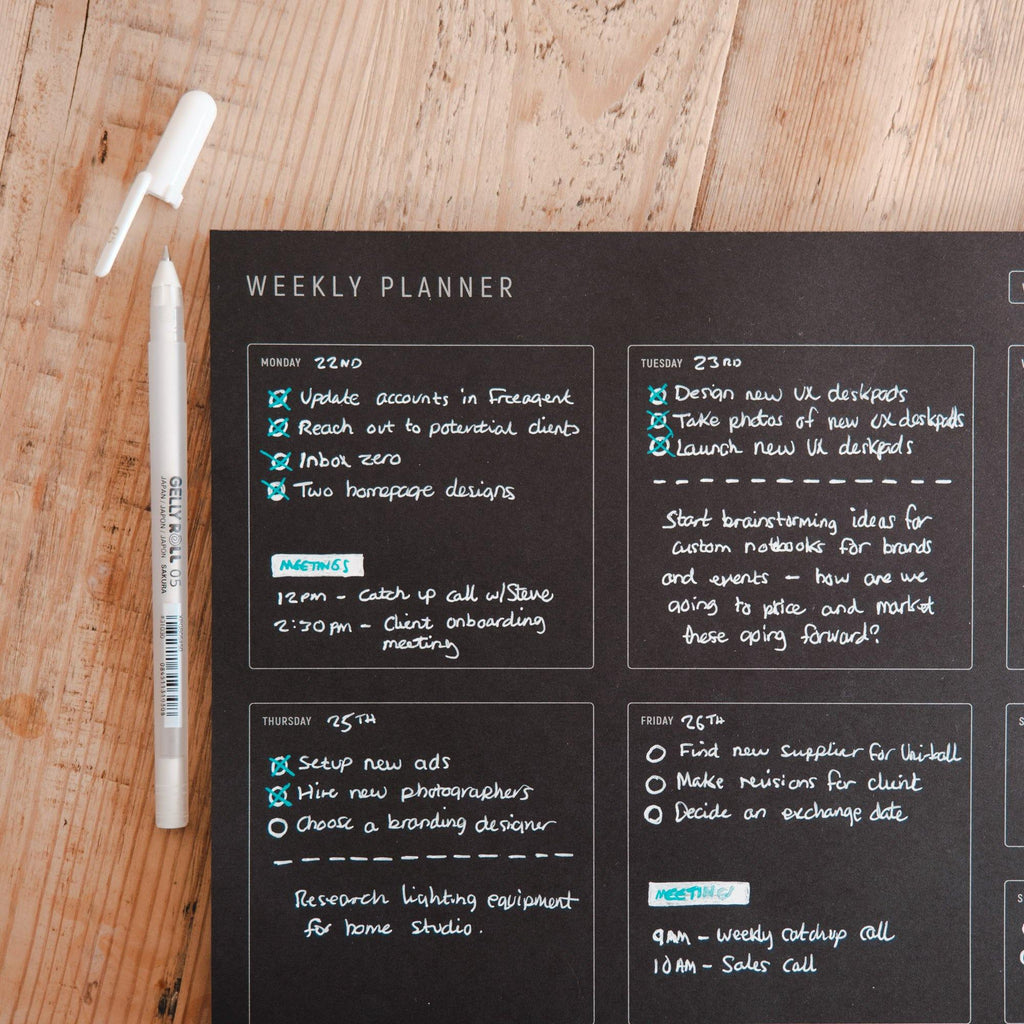 WEEKLY PLANNER
MONDAY 22ND
Update accounts in Freeagent
Reach out to potential clients
Inbox zero
Two homepage designs
MEETINGS
12PM - Catch up call w/Steve
2:30PM - Client onboarding
meeting
TUESDAY 23RD
Design new UX deskpads
Take photos of new UX deskpads
Launch new UX deskpads
Start brainstorming ideas for
custom notbooks for brands
and events - how are we
going to price and market
these going forward?
THURSDAY 25TH
Setup new ads
Hire new photographers
Choose a branding designer
Research lighting equipment
for home studio.
FRIDAY 26TH
Find new supplier for Uni-ball
Make revisions for client
Decide on exchange date
MEETINGS
9AM - Weekly catchup call
10AM - Sales call
GELLY ROLL 05
JAPAN / JAPON / JAPON SAKURA